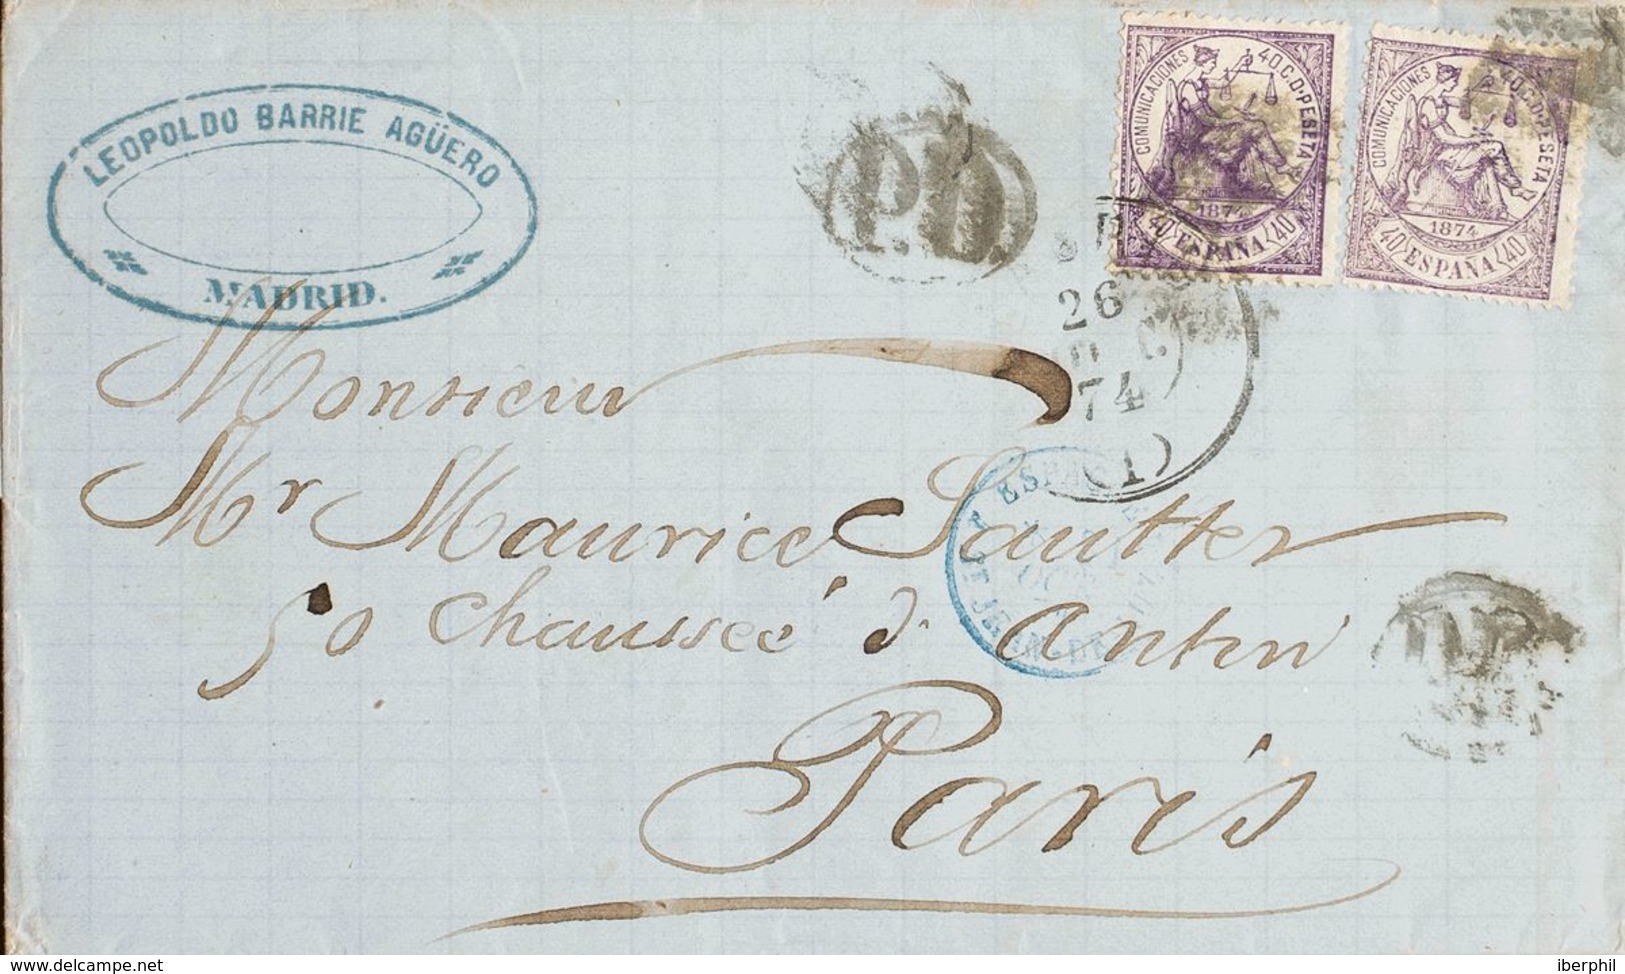 LEOPOLDO BARRIE AGÜERO
MADRID.
P.D.
COMUNICACIONES 40 C. D. PESETA
1874
40 ESPAÑA 40
COMUNICACIONES 40 C. D. PESETA
1874
40 ESPAÑA 40
26
74
(1)
OCT
ST JEAN-DE-LUZ
Monsieur
Mr Maurice Sautter
50 Chaussée d'Antin
Paris
iberphil